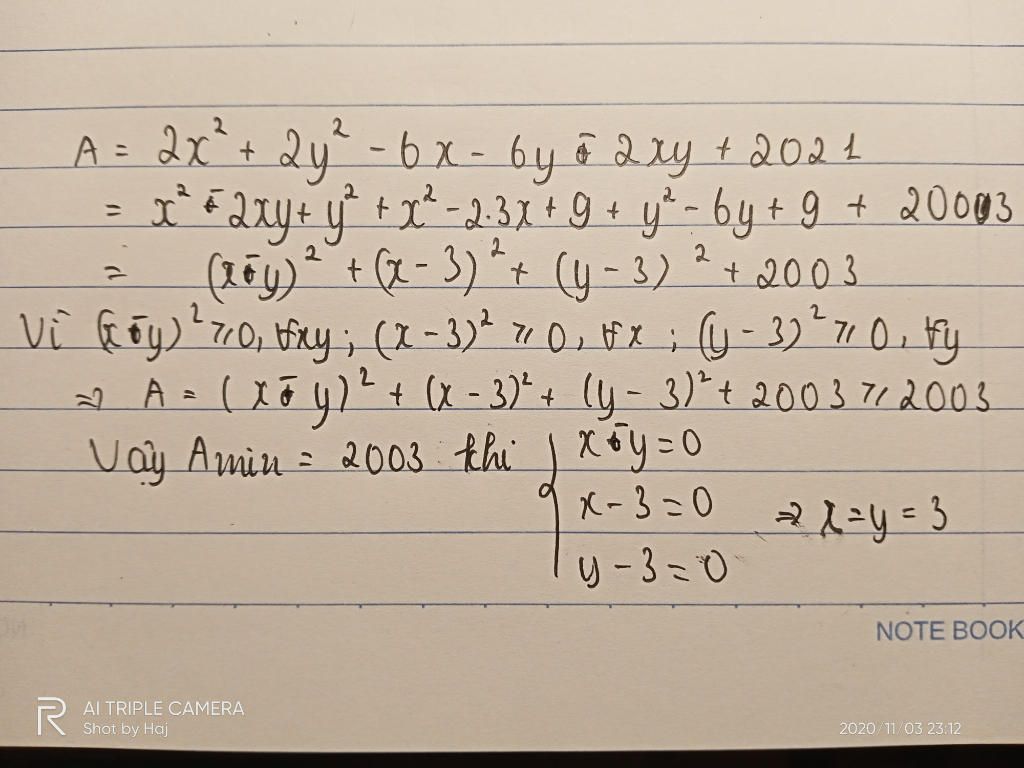 A = 2x² + 2y² - 6x - 6y - 2xy + 2021
= x² - 2xy + y² + x² - 2.3x + 9 + y² - 6y + 9 + 2003
= (x - y)² + (x - 3)² + (y - 3)² + 2003
Vì (x - y)² ≥ 0, ∀xy ; (x - 3)² ≥ 0, ∀x ; (y - 3)² ≥ 0, ∀y
⇒ A = (x - y)² + (x - 3)² + (y - 3)² + 2003 ≥ 2003
Vậy Amin = 2003 khi { x - y = 0
x - 3 = 0 ⇒ x = y = 3
y - 3 = 0
NOTE BOOK
AI TRIPLE CAMERA
Shot by Haj
2020/11/03 23:12